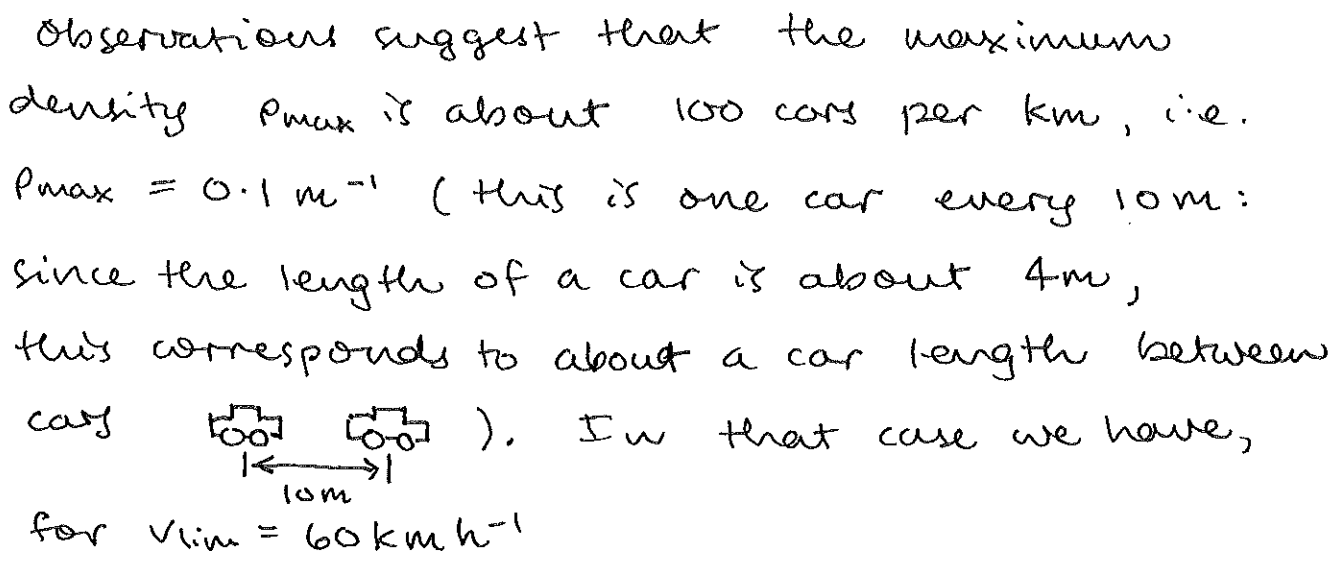 Observations suggest that the maximum
density ρmax is about 100 cars per km, i.e.
ρmax = 0.1 m⁻¹ (this is one car every 10m:
since the length of a car is about 4m,
this corresponds to about a car length between
cars ). In that case we have,
10m
for vlim = 60 km h⁻¹